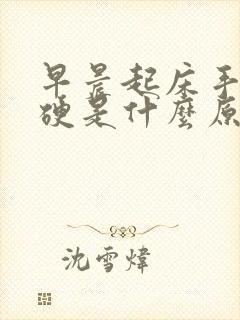 早晨起床手
硬是什麼原
沈雪煒